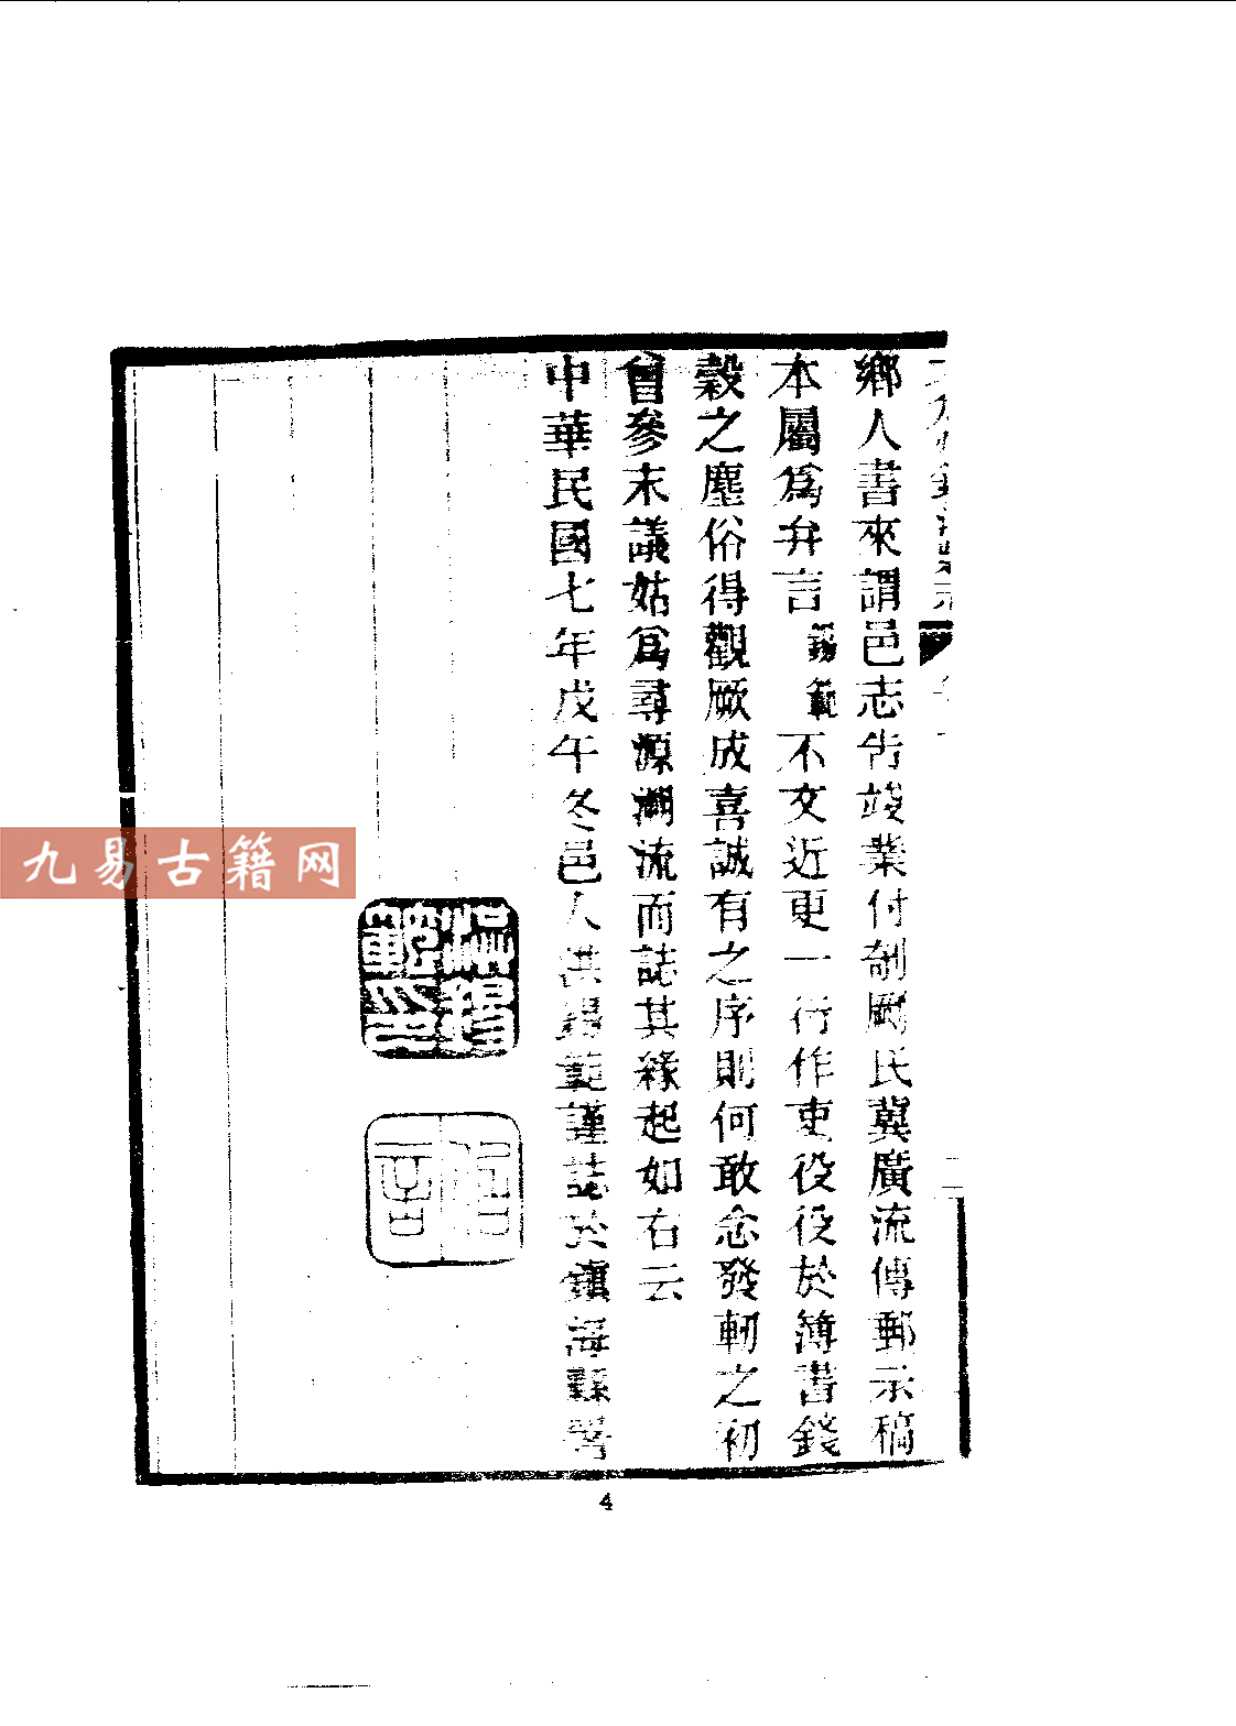 鄉人書來謂邑志告竣業付剞劂氏冀廣流傳郵示稿
本屬爲弁言錫範不文近更一行作吏役役於簿書錢
穀之塵俗得觀厥成喜誠有之序則何敢念發軔之初
曾參末議姑爲尋源溯流而誌其緣起如右云
中華民國七年戊午冬邑人洪錫範謹誌於鎭海縣署
洪錫範印
九易古籍网
4